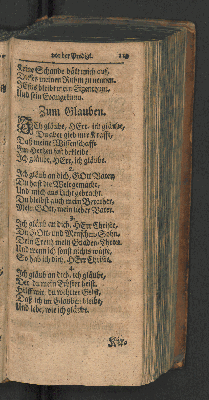 vor der Predigt.
Keine Schande hält mich auf,
Dieses meinen Ruhm zu nennen,
JEsus bleibt mein Eigenthum,
Und sein Evangelium.
Zum Glauben.
JCh gläube, HErr, ich gläube,
Du aber gieb mir Krafft,
Daß meine Wissenschafft
Im Hertzen bleibe
Ich gläube, HErr, ich gläube.
Ich gläub an dich, GOtt Vater,
Du hast die Welt gemacht,
Und mich ans Licht gebracht.
Du bleibst auch mein Berather,
Mein GOtt, mein lieber Vater.
3.
Ich gläub an dich, HErr Christe,
Du GOtt, und Menschen-Sohn,
Dein Creutz mein Gnaden-Thron,
Und wenn ich sonst nichts wüste,
So hab ich dich, HErr Christe.
4.
Ich gläub an dich, ich gläube,
Der du mein Tröster heist,
Hilff mir, du werther Geist,
Daß ich im Glauben bleibe,
Und lebe, wie ich gläube.